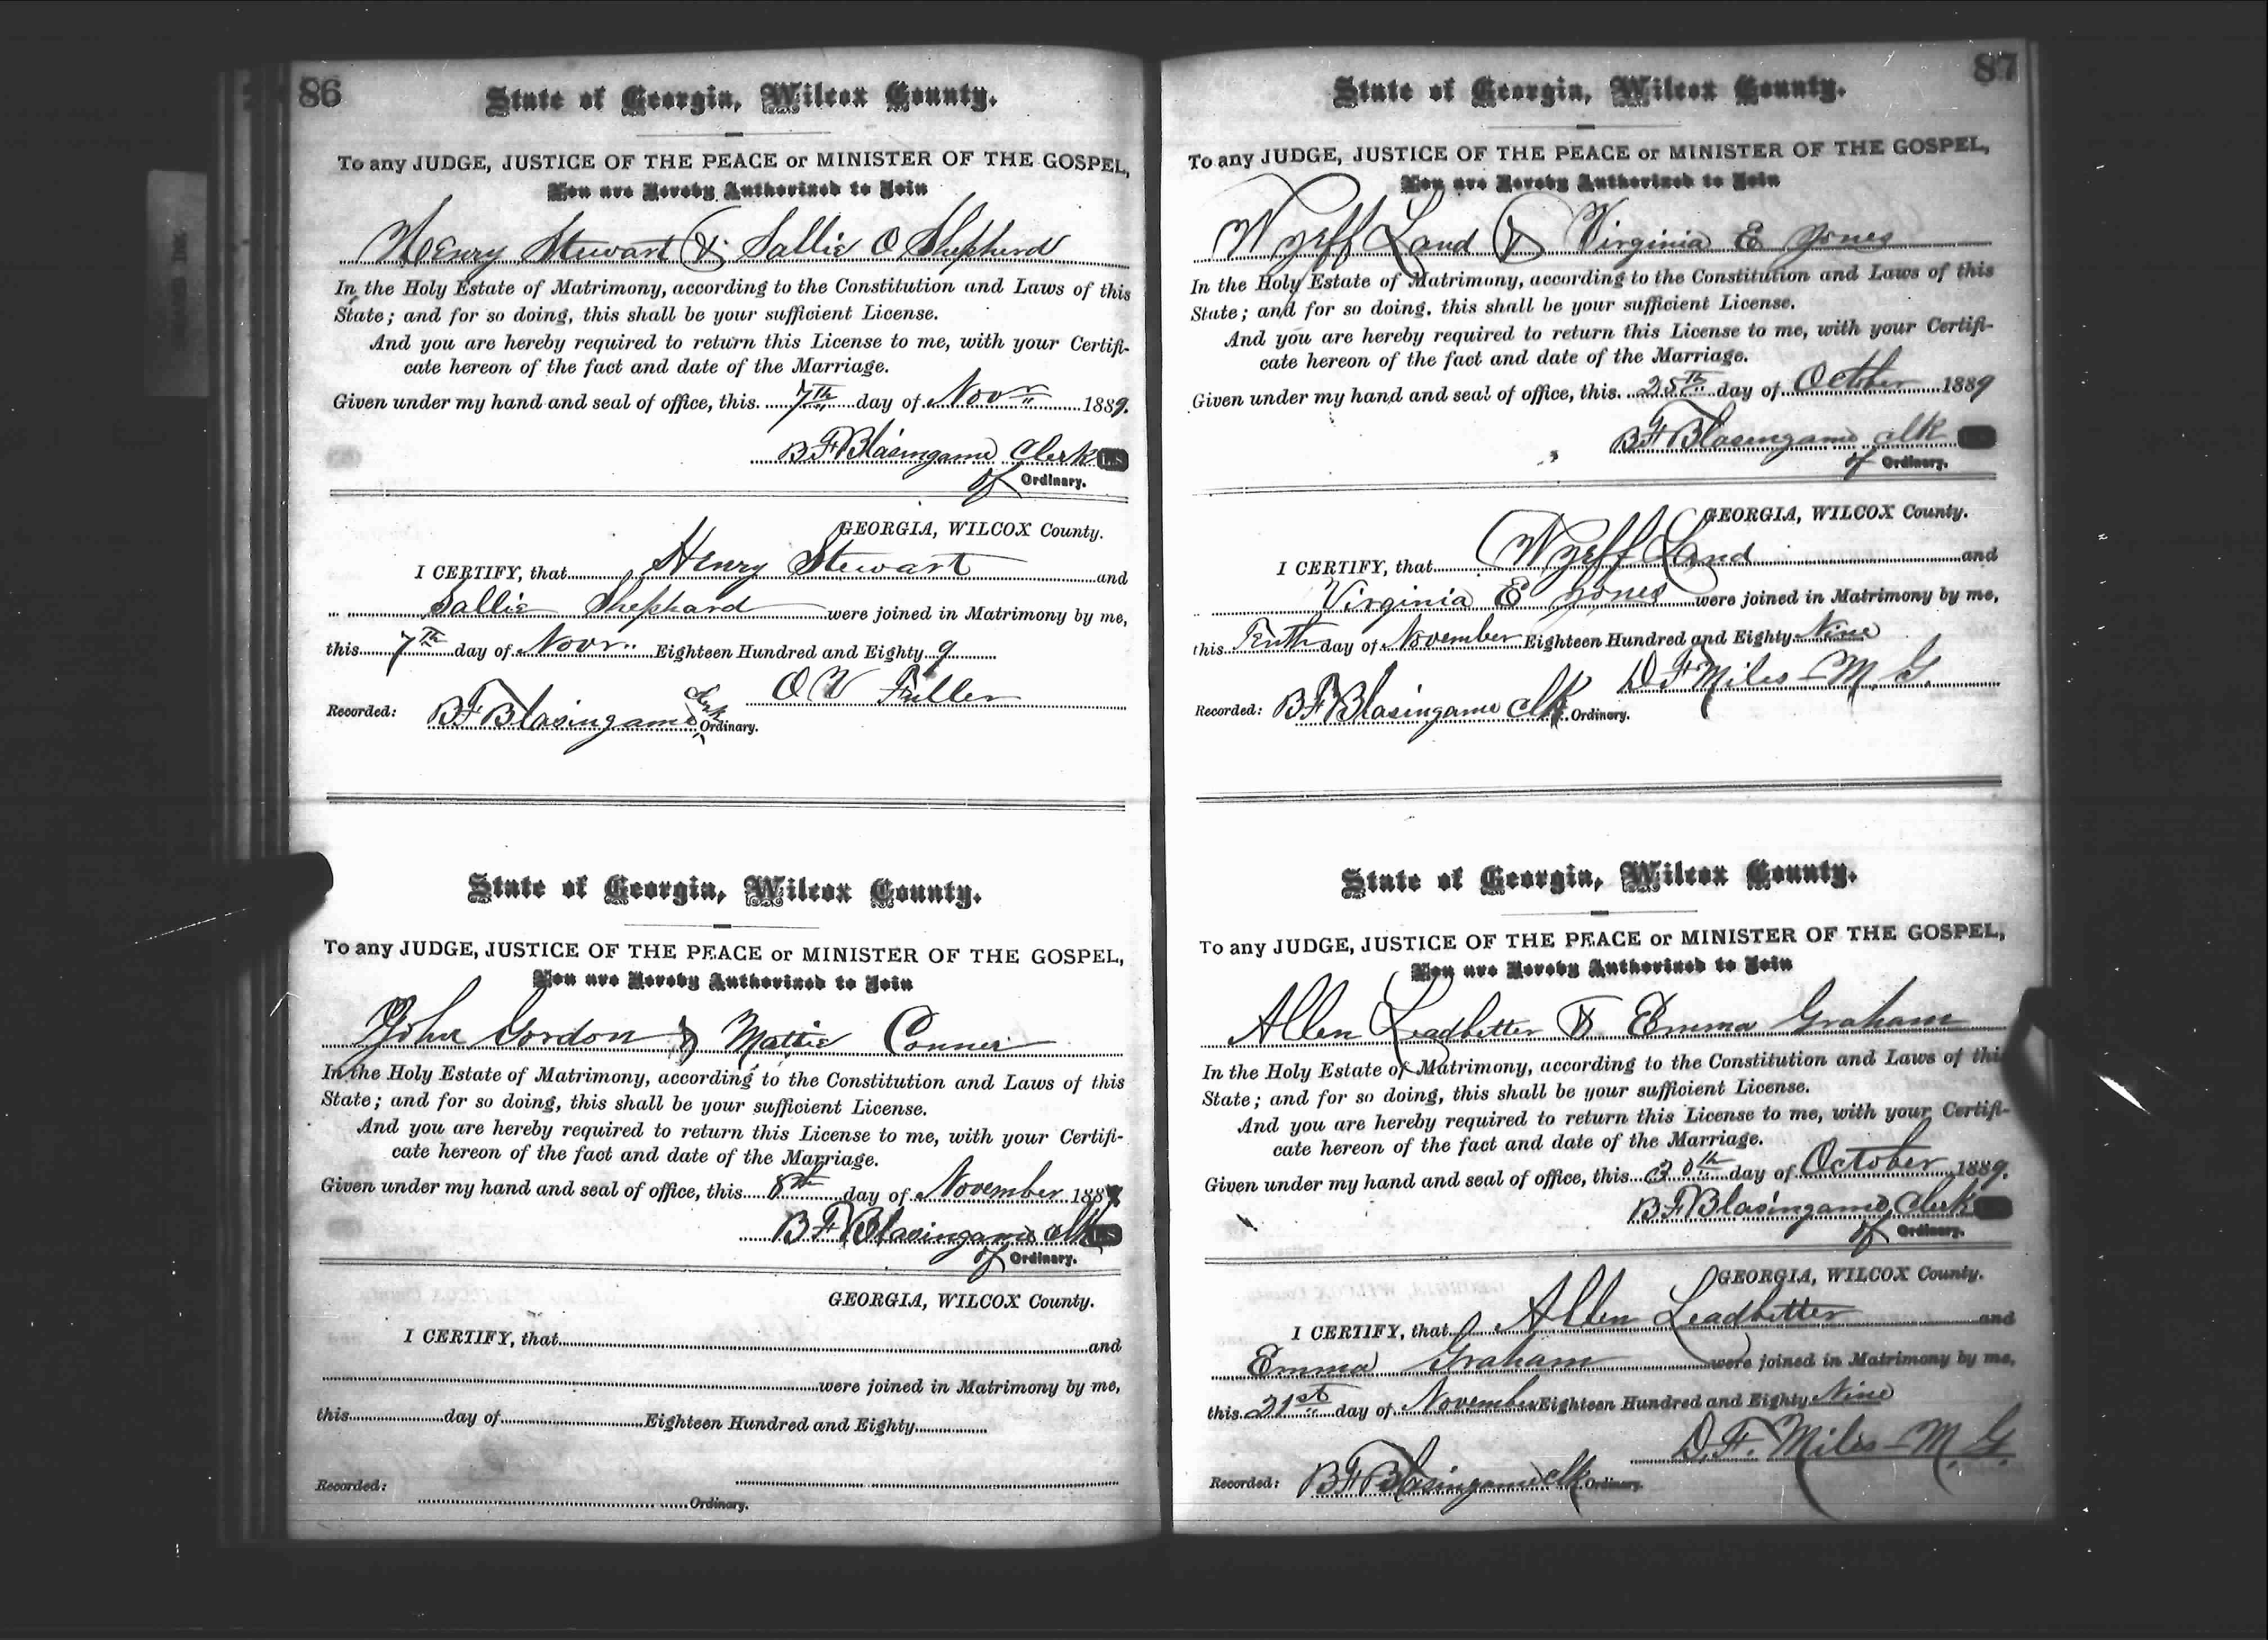 86
State of Georgia, Wilcox County.
To any JUDGE, JUSTICE OF THE PEACE or MINISTER OF THE GOSPEL,
You are Hereby Authorized to Join
Henry Stewart & Sallie O Shepherd
In the Holy Estate of Matrimony, according to the Constitution and Laws of this
State; and for so doing, this shall be your sufficient License.
And you are hereby required to return this License to me, with your Certifi-
cate hereon of the fact and date of the Marriage.
Given under my hand and seal of office, this 7th day of Novr 1889.
B F Blasingame Clerk LS
of Ordinary.
GEORGIA, WILCOX County.
I CERTIFY, that Henry Stewart and
Sallie Shephard were joined in Matrimony by me,
this 7th day of Novr. Eighteen Hundred and Eighty 9
O V Fuller
Recorded: B F Blasingame Clerk Ordinary.
State of Georgia, Wilcox County.
To any JUDGE, JUSTICE OF THE PEACE or MINISTER OF THE GOSPEL,
You are Hereby Authorized to Join
John Gordon & Mattie Conner
In the Holy Estate of Matrimony, according to the Constitution and Laws of this
State; and for so doing, this shall be your sufficient License.
And you are hereby required to return this License to me, with your Certifi-
cate hereon of the fact and date of the Marriage.
Given under my hand and seal of office, this 8th day of November 188
B F Blasingame clk LS
of Ordinary.
GEORGIA, WILCOX County.
I CERTIFY, that and
were joined in Matrimony by me,
this day of Eighteen Hundred and Eighty
Recorded:
Ordinary.
87
State of Georgia, Wilcox County.
To any JUDGE, JUSTICE OF THE PEACE or MINISTER OF THE GOSPEL,
You are Hereby Authorized to Join
Wyeff Land & Virginia E Jones
In the Holy Estate of Matrimony, according to the Constitution and Laws of this
State; and for so doing, this shall be your sufficient License.
And you are hereby required to return this License to me, with your Certifi-
cate hereon of the fact and date of the Marriage.
Given under my hand and seal of office, this 25th day of October 1889
B F Blasingame clk
of Ordinary.
GEORGIA, WILCOX County.
I CERTIFY, that Wyeff Land and
Virginia E Jones were joined in Matrimony by me,
this Tenth day of November Eighteen Hundred and Eighty Nine
D F Miles - M. G.
Recorded: B F Blasingame clk Ordinary.
State of Georgia, Wilcox County.
To any JUDGE, JUSTICE OF THE PEACE or MINISTER OF THE GOSPEL,
You are Hereby Authorized to Join
Allen Leadbetter & Emma Graham
In the Holy Estate of Matrimony, according to the Constitution and Laws of this
State; and for so doing, this shall be your sufficient License.
And you are hereby required to return this License to me, with your Certifi-
cate hereon of the fact and date of the Marriage.
Given under my hand and seal of office, this 30th day of October 1889.
B F Blasingame Clerk
of Ordinary.
GEORGIA, WILCOX County.
I CERTIFY, that Allen Leadbetter and
Emma Graham were joined in Matrimony by me,
this 21st day of November Eighteen Hundred and Eighty Nine
D. F. Miles - M. G.
Recorded: B F Blasingame clk Ordinary.